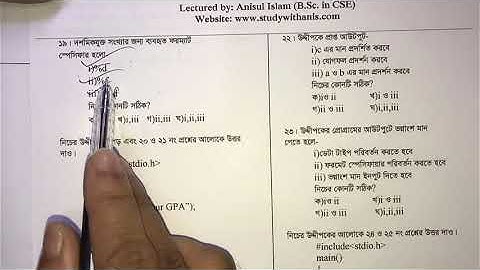 Lectured by: Anisul Islam (B.Sc. in CSE)
Website: www.studywithanis.com
১৯। দশমিকযুক্ত সংখ্যার জন্য ব্যবহৃত ফরম্যাট
স্পেসিফায়ার হলো
i)%d
ii)%f
iii)
নিচের কোনটি সঠিক?
খ)i,iii গ)ii,iii ঘ)i,ii,iii
নিচের এবং ২০ ও ২১ নং প্রশ্নের আলোকে উত্তর
দাও।
stdio.h>
our GPA");
২২। উদ্দীপকে প্রাপ্ত আউটপুট-
i)c এর মান প্রদর্শিত করবে
ii) যোগফল প্রদর্শন করবে
iii) a ও b এর মান প্রদর্শন করবে
নিচের কোনটি সঠিক?
ক)iও ii খ)i ও iii
গ)ii ও iii ঘ)i,ii,iii
২৩। উদ্দীপকের প্রোগ্রামের আউটপুটে ভগ্নাংশ মান
পেতে হলে-
i)ডেটা টাইপ পরিবর্তন করতে হবে
ii) ফরমেট স্পেসিফায়ার পরিবর্তন করতে হবে
iii) ভগ্নাংশ মান ইনপুট দিতে হবে
নিচের কোনটি সঠিক?
ক)iও ii খ)i ও iii
গ)ii ও iii ঘ)i,ii,iii
নিচের উদ্দীপকের আলোকে ২৪ ও ২৫ নং প্রশ্নের উত্তর দাও।
#include<stdio.h>
main()